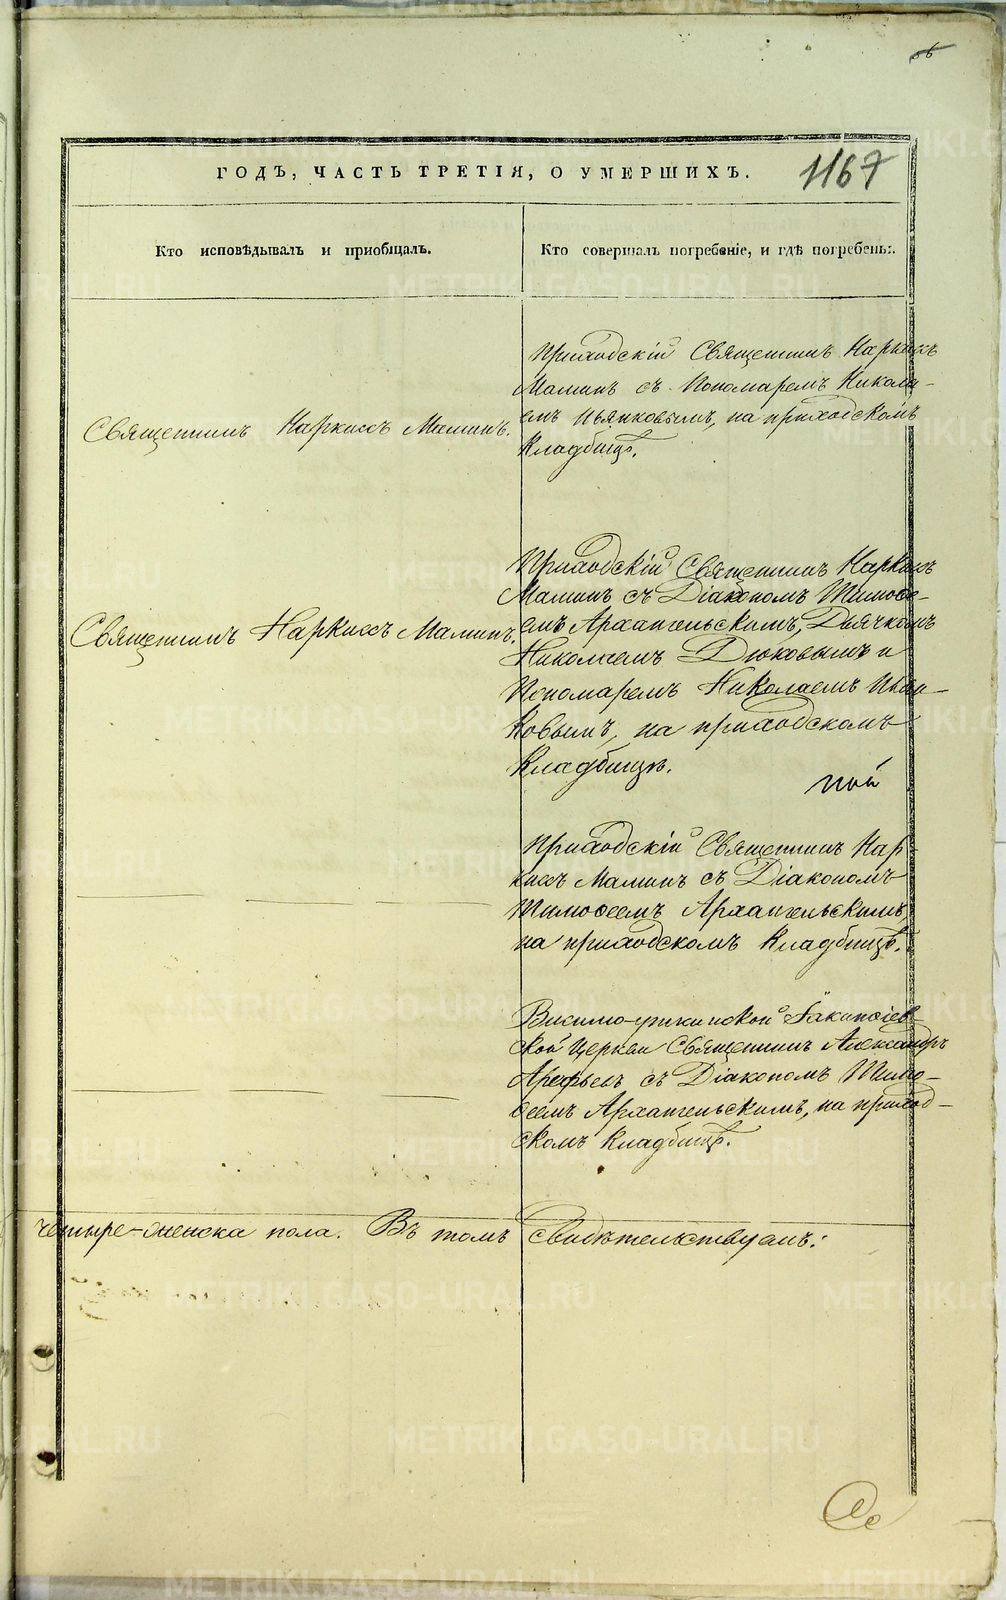 1167
ГОДЪ, ЧАСТЬ ТРЕТІЯ, О УМЕРШИХЪ.
Кто исповѣдывалъ и пріобщалъ.
Кто совершалъ погребеніе, и гдѣ погребены.
Священникъ Наркиссъ Маминъ.
Приходскій Священникъ Наркиссъ
Маминъ съ Пономаремъ Никола-
емъ Пьянковымъ, на приходскомъ
Кладбищѣ.
Священникъ Наркиссъ Маминъ.
Приходскій Священникъ Наркиссъ
Маминъ съ Діакономъ Тимофе-
емъ Архангельскимъ, Дьячкомъ
Николаемъ Дюковымъ и
Пономаремъ Николаемъ Пьян-
ковымъ, на приходскомъ
Кладбищѣ.
Приходскій Священникъ Нар-
киссъ Маминъ съ Діакономъ
Тимофеемъ Архангельскимъ,
на приходскомъ Кладбищѣ.
Висимо-уткинской Іакинѳіев-
ской Церкви Священникъ Александръ
Арефьевъ съ Діакономъ Тимо-
феемъ Архангельскимъ, на приход-
скомъ Кладбищѣ.
четыре-женска пола. Въ томъ свидѣтельствуемъ:
METRIKI.GASO-URAL.RU